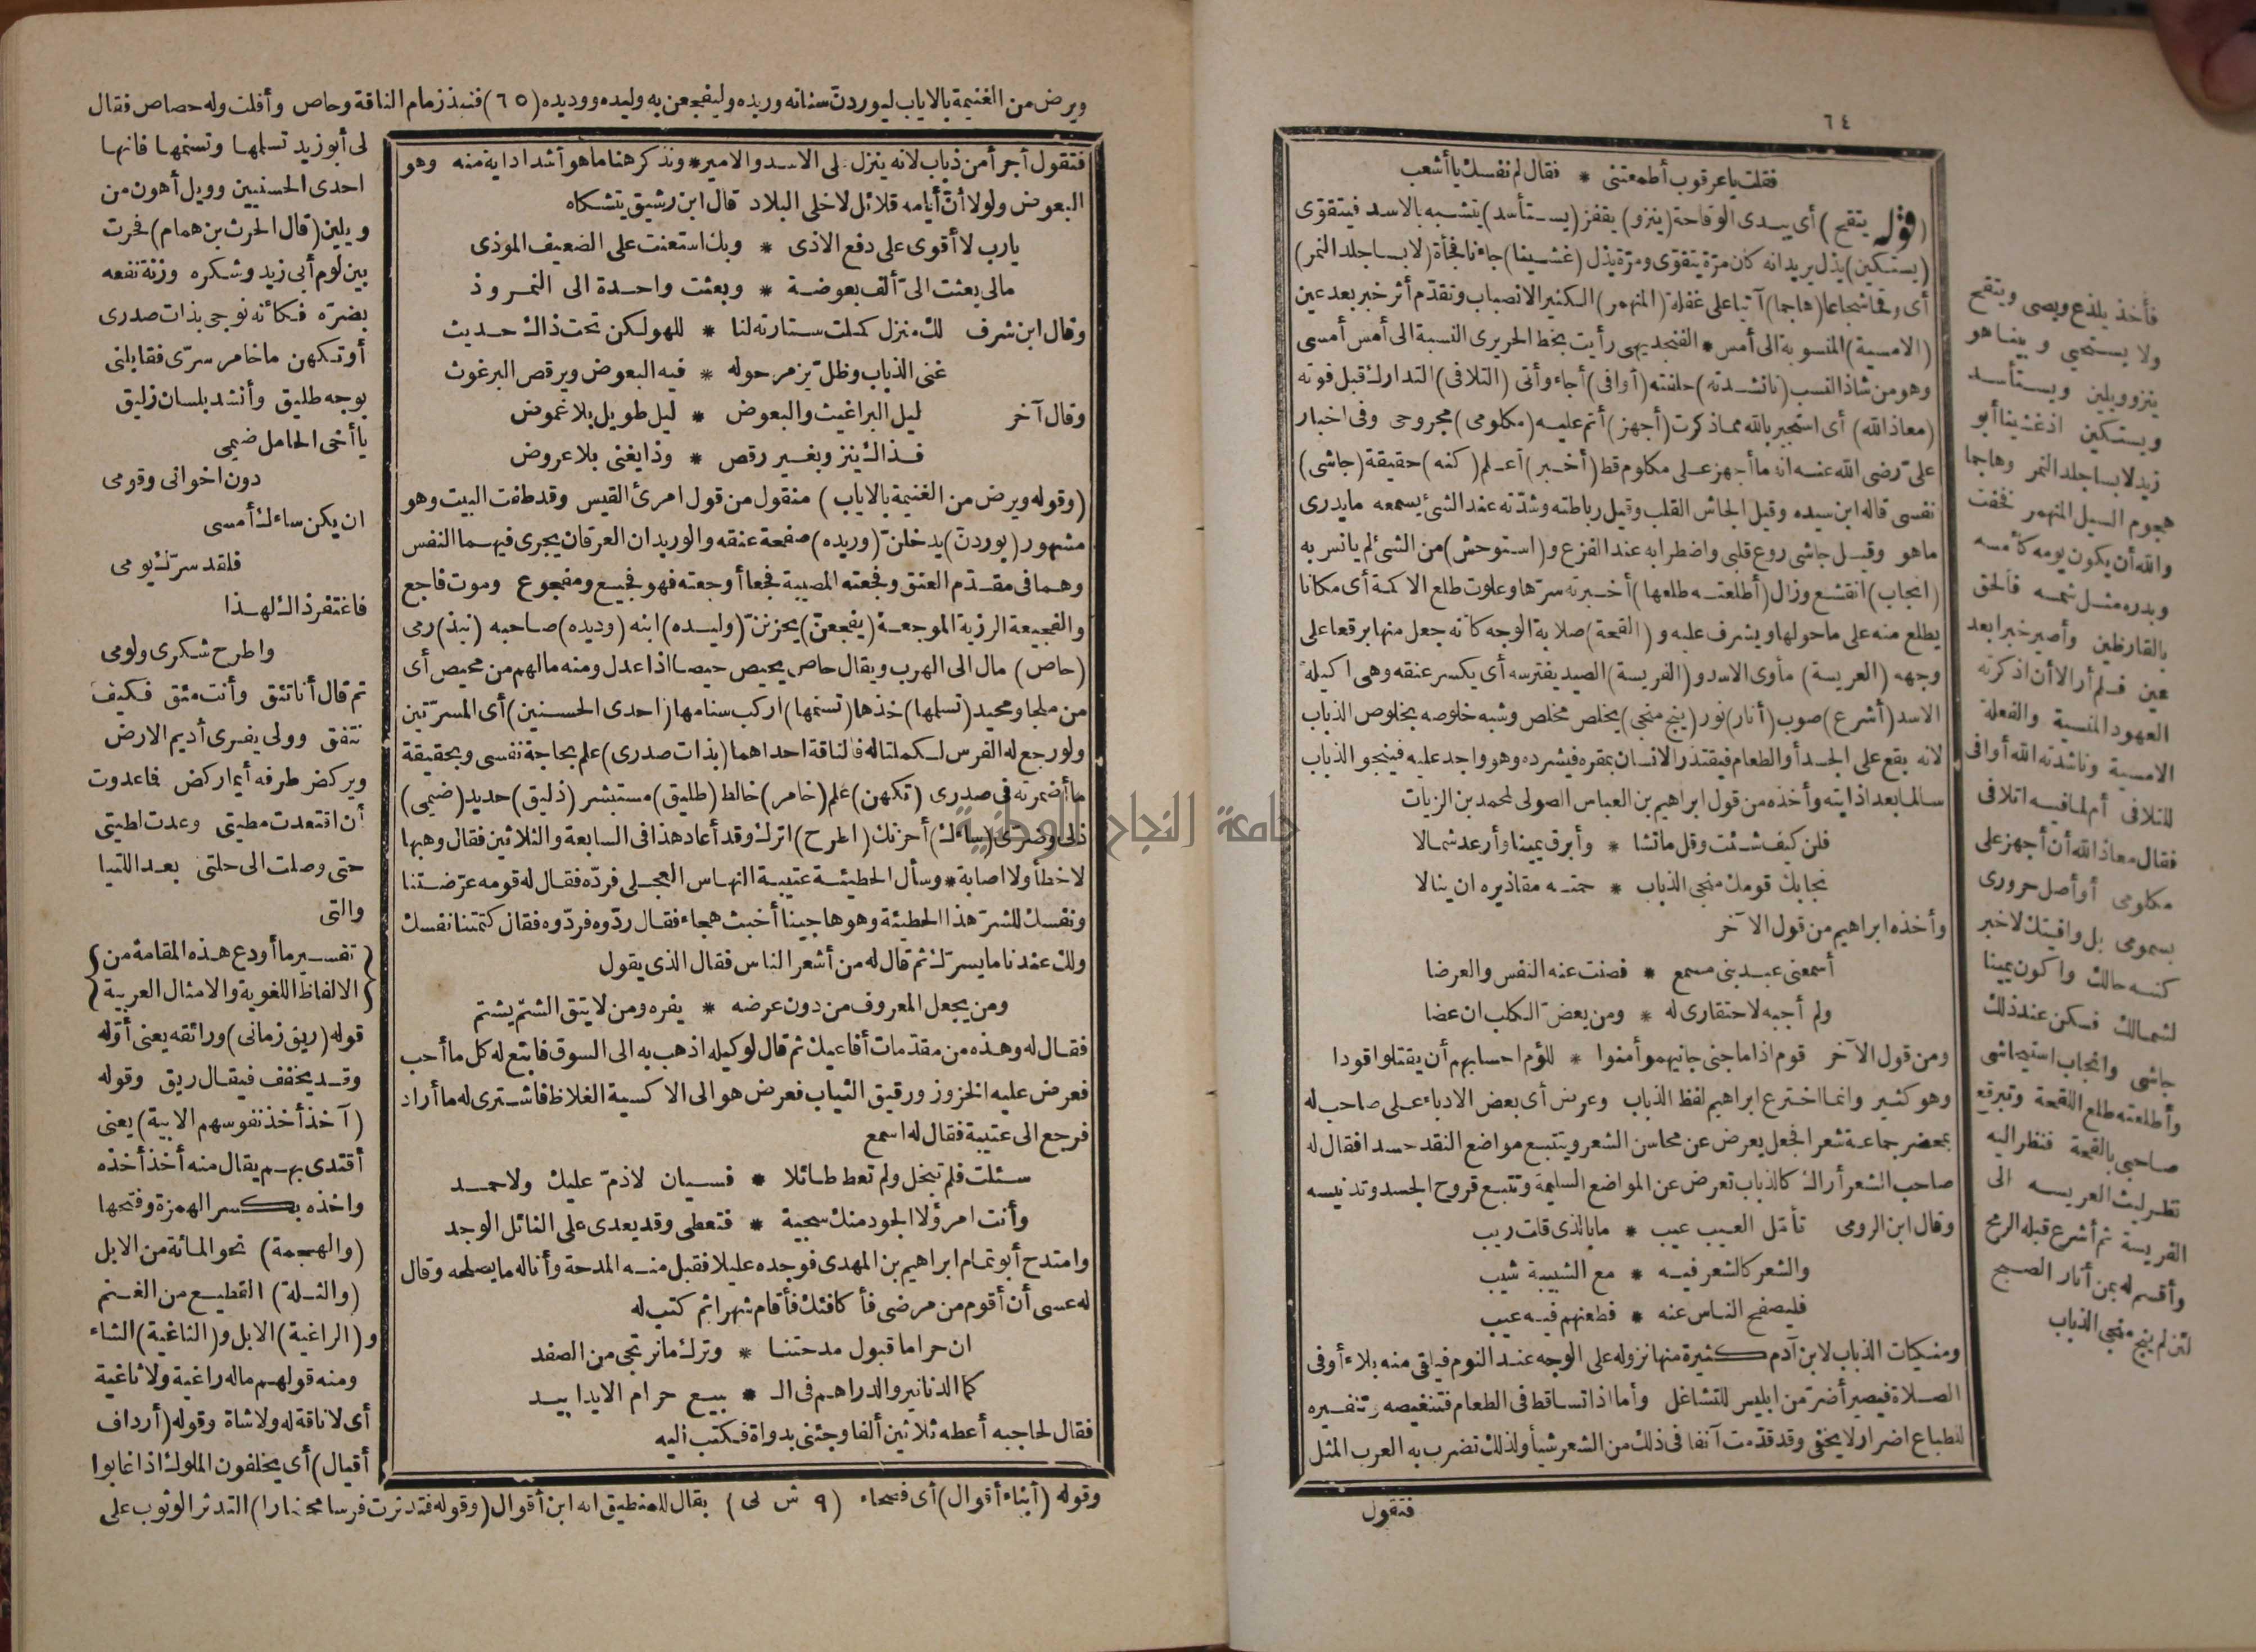 ٦٤
فقلت يا عرقوب أطمعتنى * فقال لم نفسك يا أشعب
(قوله يتقح) أى يبدى الوقاحة (ينزو) يقفز (يستأسد) يتشبه بالاسد فيتقوى
(يستكين) يذل يريد انه كان مرّة يتقوى ومرّة يذل (غشينا) جاءنا فجأة (لابسا جلد النمر)
أى وقحا شجاعا (هاجما) آتيا على غفلة (المنهمر) الكثير الانصباب وتقدّم أثر خبر بعد عين
(الامسية) المنسوبة الى أمس * الفنجديهى رأيت بخط الحريرى النسبة الى أمس أمسى
وهو من شاذ النسب (ناشدته) حلفته (أوافى) أجاء وأتى (التلافى) التدارك قبل فوته
(معاذ الله) أى استجير بالله مما ذكرت (أجهز) أتم عليه (مكلومى) مجروحى وفى اخبار
علىّ رضى الله عنه انه ما أجهز على مكلوم قط (أخبر) أعلم (كنه) حقيقة (جاشى)
نفسى قاله ابن سيده وقيل الجاش القلب وقيل رباطته وشدّته عند الشئ يسمعه مايدرى
ماهو وقيل جاشى روع قلبى واضطرابه عند الفزع و(استوحش) من الشئ لم يانس به
(انجاب) انقشع وزال (أطلعته طلعها) أخبرته سرّها وعلوت طلع الاكمة أى مكانا
يطلع منه على ماحولها ويشرف عليه و(القحة) صلابة الوجه كانه جعل منها برقعا على
وجهه (العريسة) مأوى الاسد و(الفريسة) الصيد يفترسه أى يكسر عنقه وهى اكيلة
الاسد (أشرع) صوب (أنار) نور (ينج منجى) يخلص مخلص وشبه خلوصه بخلوص الذباب
لانه يقع على الجسد أو الطعام فيقتذر الانسان بمقره فيشرده وهو واجد عليه فينجو الذباب
سالما بعد اذايته وأخذه من قول ابراهيم بن العباس الصولى لمحمد بن الزيات
فلن كيف شئت وقل ماتشا * وأبرق يمينا وأرعد شمالا
نجابك قومك منجى الذباب * حمته مقاذيره ان ينالا
وأخذه ابراهيم من قول الآخر
أسمعنى عبد بنى مسمع * فصنت عنه النفس والعرضا
ولم أجبه لاحتقارى له * ومن يعضّ الكلب ان عضا
ومن قول الآخر قوم اذا ما جنى جانيهمو أمنوا * للؤم احسابهم أن يقتلوا قودا
وهو كثير وانما اخترع ابراهيم لفظ الذباب وعرض أى بعض الادباء على صاحب له
بمحضر جماعة شعرا فجعل يعرض عن محاسن الشعر ويتتبع مواضع النقد حسدا فقال له
صاحب الشعر أراك كالذباب تعرض عن المواضع السليمة وتتبع قروح الجسد وتدنيسه
وقال ابن الرومى تأمّل العيب عيب * ما بالذى قلت ريب
والشعر كالشعر فيه * مع الشبيبة شيب
فليصفح الناس عنه * فطعنهم فيه عيب
ومنكيات الذباب لابن آدم كثيرة منها نزوله على الوجه عند النوم فيلقى منه بلاء أو فى
الصلاة فيصير أضرّ من ابليس للتشاغل وأما اذا تساقط فى الطعام فتنغيصه وتنفيره
للطباع اضرار لا يخفى وقد قدّمت آنفا فى ذلك من الشعر شيأ ولذلك تضرب به العرب المثل
فتقول
فأخذ يلذع ويصى ويتقح
ولا يستحى وبينما هو
ينزو ويلين ويستأسد
ويستكين اذ غشينا أبو
زيد لابسا جلد النمر وهاجما
هجوم السيل المنهمر فخفت
والله أن يكون يومه كأمسه
وبدره مثل شمسه فالحق
بالقارظين وأصير خبرا بعد
عين فلم أر الا أن اذكرته
العهود المنسية والفعلة
الامسية وناشدته الله أوافى
للتلافى أم لما فيه اتلافى
فقال معاذ الله أن أجهز على
مكلومى أو أصل حرورى
بسمومى بل وافيتك لاخبر
كنه حالك واكون يمينا
لشمالك فسكن عند ذلك
جاشى وانجاب استيحاشى
وأطلعته طلع اللقحة وتبرقع
صاحبى بالقحة فنظر اليه
نظر ليث العريسه الى
الفريسة ثم أشرع قبله الرمح
وأقسم له بمن أنار الصبح
لئن لم ينج منجى الذباب
ويرض من الغنيمة بالاياب ليوردنّ سنانه وريده وليفجعن به وليده ووديده (٦٥) فنبذ زمام الناقة وحاص وأفلت وله حصاص فقال
فتقول أجرأ من ذباب لانه ينزل على الاسد والامير * ونذكر هنا ما هو أشد اداية منه وهو
البعوض ولولا أنّ أيامه قلائل لاخلى البلاد قال ابن رشيق يتشكاه
يارب لا أقوى على دفع الاذى * وبك استعنت على الضعيف الموذى
مالى بعثت الىّ ألف بعوضة * وبعثت واحدة الى النمروذ
وقال ابن شرف لك منزل كملت ستارته لنا * للهو لكن تحت ذاك حديث
غنى الذباب وظلّ يزمر حوله * فيه البعوض ويرقص البرغوث
وقال آخر ليل البراغيث والبعوض * ليل طويل بلا غموض
فذاك ينزو بغير رقص * وذا يغنى بلا عروض
(وقوله ويرض من الغنيمة بالاياب) منقول من قول امرئ القيس وقد طفت البيت وهو
مشهور (يوردن) يدخلنّ (وريده) صفحة عنقه والوريدان العرقان يجرى فيهما النفس
وهما فى مقدّم العنق وفجعته المصيبة فجعا أوجعته فهو فجيع ومفجوع وموت فاجع
والفجيعة الرزية الموجعة (يفجعنّ) يحزننّ (وليده) ابنه (وديده) صاحبه (نبذ) رمى
(حاص) مال الى الهرب ويقال حاص يحيص حيصا اذا عدل ومنه مالهم من محيص أى
من ملجا ومحيد (تسلمها) خذها (تسنمها) اركب سنامها (احدى الحسنيين) أى المسرّتين
ولو رجع له الفرس لكملتا له فالناقة احداهما (بذات صدرى) علم بحاجة نفسى وبحقيقة
ما أضمرته فى صدرى (تكهن) علم (خامر) خالط (طليق) مستبشر (ذليق) حديد (ضيمى)
ذلى وضرّى (ساءك) أحزنك (اطرح) اترك وقد أعاد هذا فى السابعة والثلاثين فقال وهبها
لا خطأ ولا اصابة * وسأل الحطيئة عتيبة النهاس العجلى فردّه فقال له قومه عرّضتنا
ونفسك للشرّ هذا الحطيئة وهو هاجينا أخبث هجاء فقال ردّوه فردّوه فقال كتمتنا نفسك
ولك عندنا ما يسرّك ثم قال له من أشعر الناس فقال الذى يقول
ومن يجعل المعروف من دون عرضه * يفره ومن لا يتق الشتم يشتم
فقال له وهذه من مقدّمات أفاعيك ثم قال لوكيله اذهب به الى السوق فابتع له كل ما أحب
فعرض عليه الخزوز ورقيق الثياب فعرض هو الى الاكسية الغلاظ فاشترى له ما أراد
فرجع الى عتيبة فقال له اسمع
سئلت فلم تبخل ولم تعط طائلا * فسيان لا ذمّ عليك ولا حمد
وأنت امرؤ لا الجود منك سجية * فتعطى وقد يعدى على النائل الوجد
وامتدح أبو تمام ابراهيم بن المهدى فوجده عليلا فقبل منه المدحة وأناله ما يصلحه وقال
له عسى أن أقوم من مرضى فأكافئك فأقام شهرا ثم كتب له
ان حراما قبول مدحتنا * وترك ما نرتجى من الصفد
كما الدنانير والدراهم فى الـ * بيع حرام الا يدا بيد
فقال لحاجبه أعطه ثلاثين ألفا وجئنى بدواة فكتب اليه
لى أبو زيد تسلمها وتسنمها فانها
احدى الحسنيين وويل أهون من
ويلين (قال الحرث بن همام) فحرت
بين لوم أبى زيد وشكره وزنة نفعه
بضرّه فكأنه نوجى بذات صدرى
أو تكهن ما خامر سرّى فقابلنى
بوجه طليق وأنشد بلسان زليق
يا أخى الحامل ضيمى
دون اخوانى وقومى
ان يكن ساءك أمسى
فلقد سرّك يومى
فاغتفر ذاك لهذا
واطرح شكرى ولومى
ثم قال أنا تئق وأنت مئق فكيف
نتفق وولى يفرى أديم الارض
ويركض طرفه أيما ركض فاعدوت
أن اقتعدت مطيتى وعدت لطيتى
حتى وصلت الى حلتى بعد اللتيا
والتى
{تفسير ما أودع هذه المقامة من}
{الالفاظ اللغوية والامثال العربية}
قوله (ريق زمانى) ورائقه يعنى أوّله
وقد يخفف فيقال ريق وقوله
(آخذ أخذ نفوسهم الابية) يعنى
أقتدى بهم يقال منه أخذ أخذه
واخذه بكسر الهمزة وفتحها
(والهجمة) نحو المائة من الابل
(والثلة) القطيع من الغنم
و(الراغية) الابل و(الثاغية) الشاء
ومنه قولهم ماله راغية ولا ثاغية
أى لا ناقة له ولا شاة وقوله (أرداف
أقيال) أى يخلفون الملوك اذا غابوا
وقوله (أبناء أقوال) أى فصحاء (٩ ش لى) يقال للمنطيق انه ابن أقوال (وقوله فتدثرت فرسا محضارا) التدثر الوثوب على
جامعة النجاح الوطنية